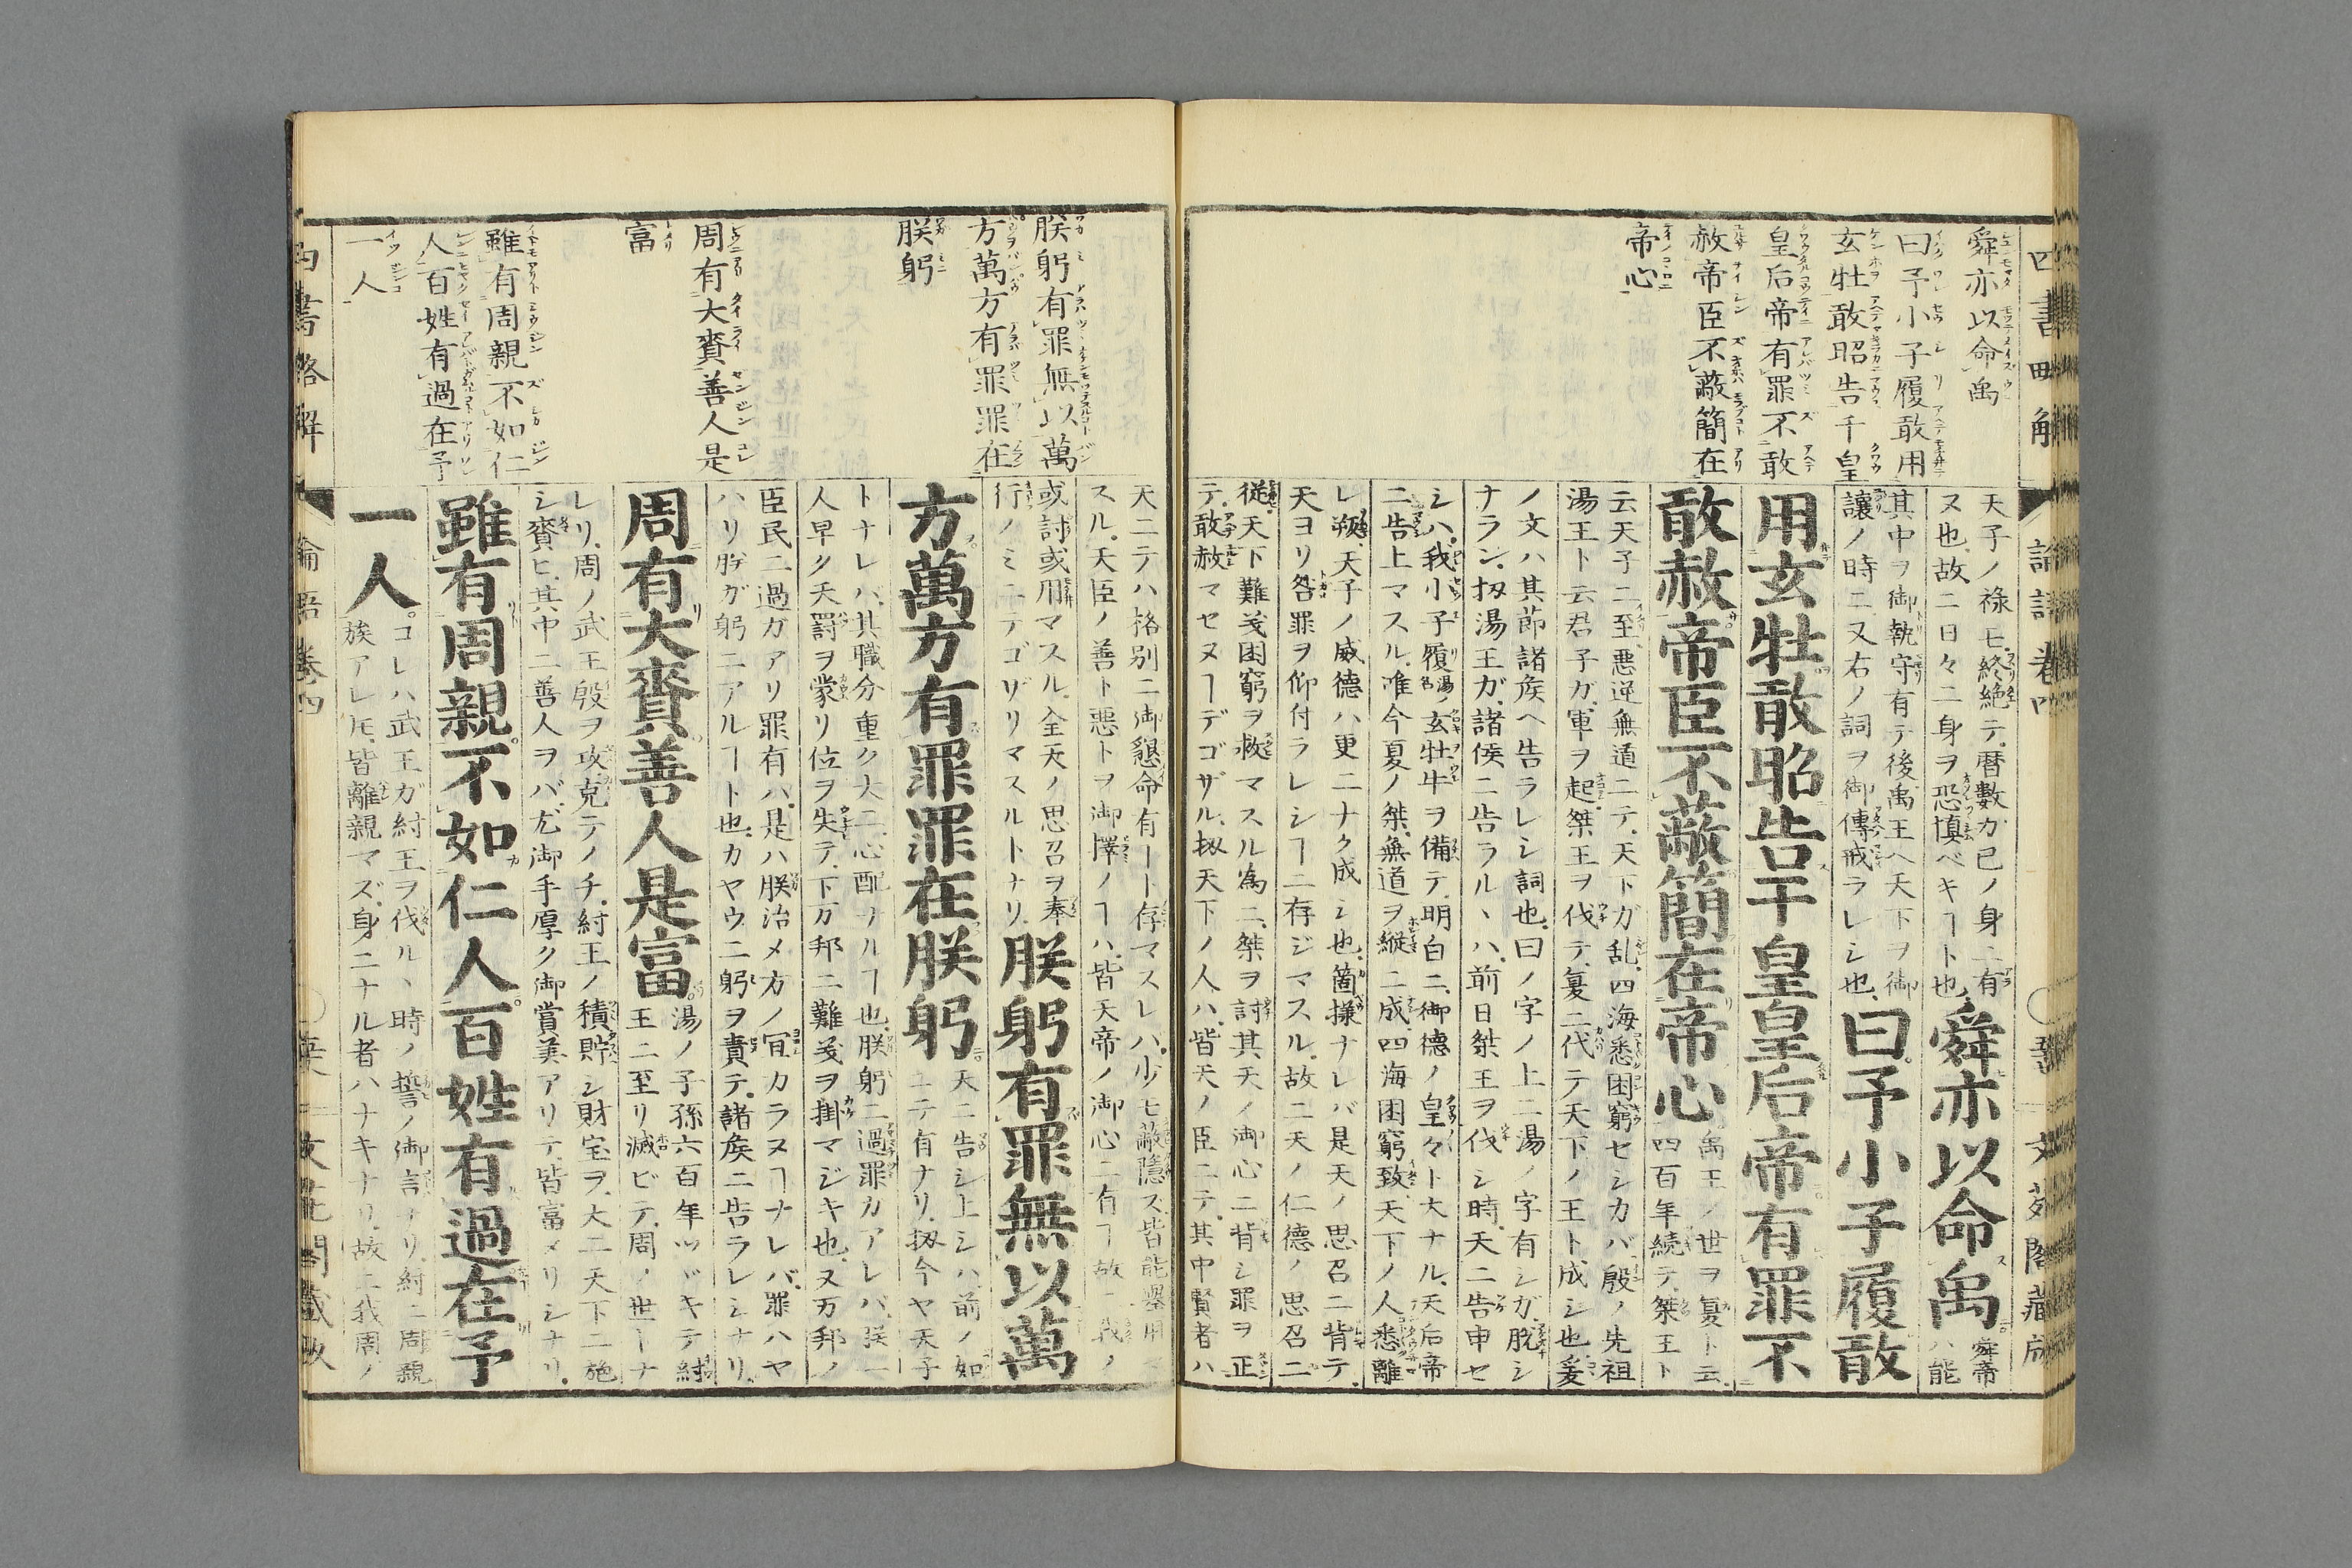 四書略解
論語卷四
舜亦以命禹
曰予小子履敢用
玄牡敢昭告于皇
皇后帝有罪不敢
赦帝臣不蔽簡在
帝心
天子ノ祿モ終絶テ暦數ガ已ノ身ニ有
ヌ也故ニ日々ニ身ヲ恐慎ベキヿト也
舜亦以命禹
舜帝
ハ能
其中ヲ御執守有テ後禹王ヘ天下ヲ御
讓ノ時ニ又右ノ詞ヲ御傳戒ラレシ也
曰予小子履敢
用玄牡敢昭告于皇皇后帝有罪不
敢赦帝臣不蔽簡在帝心
禹王ノ世ヲ夏ト云
四百年続テ桀王ト
云天子ニ至悪逆無道ニテ天下ガ乱四海悉困窮セシカバ殷ノ先祖
湯王ト云君子ガ軍ヲ起桀王ヲ伐テ夏ニ代テ天下ノ王ト成シ也爰
ノ文ハ其節諸矦ヘ告ラレシ詞也曰ノ字ノ上ニ湯ノ字有シガ脱シ
ナラン扨湯王ガ諸侯ニ告ラルヽハ前日桀王ヲ伐シ時天ニ告申セ
シハ我小子履湯ノ名玄牡牛ヲ備テ明白ニ御德ノ皇々ト大ナル天后帝
ニ告上マスル唯今夏ノ桀無道ヲ縦ニ成四海困窮致天下ノ人悉離
レ叛天子ノ威德ハ更ニナク成シ也箇様ナレバ是天ノ思召ニ背テ
天ヨリ咎罪ヲ仰付ラレシヿニ存ジマスル故ニ天ノ仁德ノ思召ニ
從天下難義困窮ヲ救マスル為ニ桀ヲ討其天ノ御心ニ背シ罪ヲ正
テ敢赦マセヌヿデゴザル扨天下ノ人ハ皆天ノ臣ニテ其中賢者ハ
朕躬有罪無以萬
方萬方有罪罪在
朕躬
周有大賚善人是
富
雖有周親不如仁
人百姓有過在予
一人
天ニテハ格別ニ御懇命有ヿト存マスレハ少モ蔽隱ズ皆能
スル天臣ノ善ト悪トヲ御擇ノヿハ皆天帝ノ御心ニ有ヿ故
或討或用マスル全天ノ思召ヲ奉
行ノミニテゴザリマスルトナリ
朕躬有罪無以萬
方萬方有罪罪在朕躬
天ニ告シ上シハ前ノ如
ニテ有ナリ扨今ヤ天子
トナレバ其職分重ク大ニ心配ヲルヿ也朕躬ニ過罪カアレバ朕一
人早ク天罰ヲ蒙リ位ヲ失テ下万邦ニ難義ヲ掛マジキ也又万邦ノ
臣民ニ過ガアリ罪有ハ是ハ朕治メ方ノ冝カラヌヿナレバ罪ハヤ
ハリ朕ガ躬ニアルヿト也カヤウニ躬ヲ責テ諸矦ニ告ラレシナリ
周有大賚善人是富
湯ノ子孫六百年ツヾキテ紂
王ニ至リ滅ビテ周ノ世トナ
レリ周ノ武王殷ヲ攻克テノチ紂王ノ積貯シ財宝ヲ大ニ天下ニ施
シ賚ヒ其中ニ善人ヲバ尤御手厚ク御賞美アリテ皆富メリシナリ
雖有周親不如仁人百姓有過在予
一人
コレハ武王ガ紂王ヲ伐ルヽ時ノ誓ノ御言ナリ紂ニ周親
族アレ𪜈皆離親マズ身ニナル者ハナキナリ故ニ我周ノ
四書略解
論語卷四